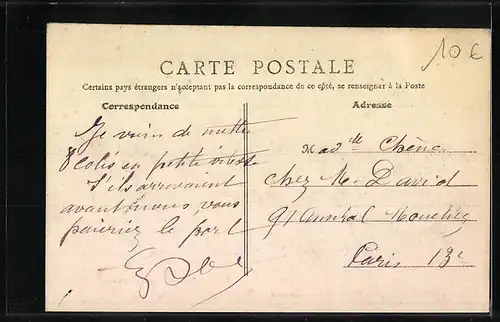 10 €
CARTE POSTALE
Certains pays étrangers n'acceptant pas la correspondance de ce côté, se renseigner à la Poste
Correspondance
Je viens de mettre
8 colis en petite vitesse
S'ils arrivaient
avant nous, vous
paieriez le port
Adresse
Mad lle Chêne
chez M. David
91 Amiral Mouchez
Paris 13e